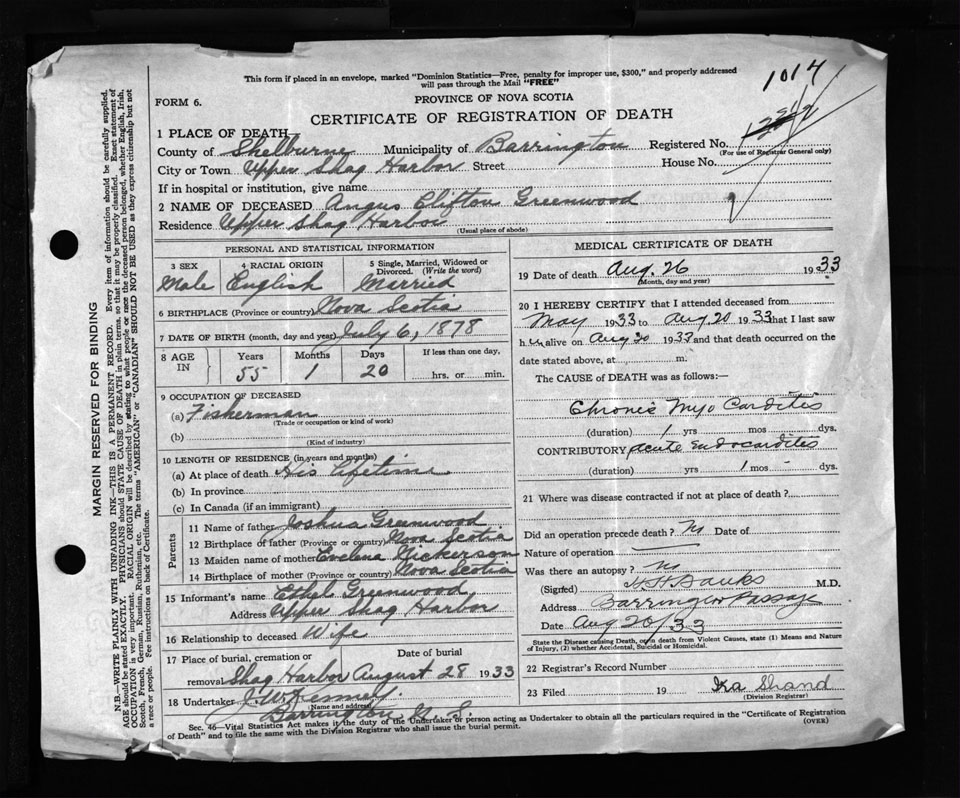 This form if placed in an envelope, marked "Dominion Statistics—Free, penalty for improper use, $300," and properly addressed
will pass through the Mail "FREE"
1014
FORM 6.
PROVINCE OF NOVA SCOTIA
CERTIFICATE OF REGISTRATION OF DEATH
1 PLACE OF DEATH
County of Shelburne Municipality of Barrington Registered No.
(For use of Registrar General only)
City or Town Upper Shag Harbor Street House No.
If in hospital or institution, give name
2 NAME OF DECEASED Angus Clifton Greenwood
Residence Upper Shag Harbor
(Usual place of abode)
PERSONAL AND STATISTICAL INFORMATION
3 SEX 4 RACIAL ORIGIN 5 Single, Married, Widowed or
Divorced. (Write the word)
Male English Married
6 BIRTHPLACE (Province or country) Nova Scotia
7 DATE OF BIRTH (month, day and year) July 6, 1878
8 AGE IN Years Months Days If less than one day,
55 1 20 hrs. or min.
9 OCCUPATION OF DECEASED
(a) Fisherman
(Trade or occupation or kind of work)
(b)
(Kind of industry)
10 LENGTH OF RESIDENCE (in years and months)
(a) At place of death His lifetime
(b) In province
(c) In Canada (if an immigrant)
Parents
11 Name of father Joshua Greenwood
12 Birthplace of father (Province or country) Nova Scotia
13 Maiden name of mother Evelena Nickerson
14 Birthplace of mother (Province or country) Nova Scotia
15 Informant's name Ethel Greenwood
Address Upper Shag Harbor
16 Relationship to deceased Wife
17 Place of burial, cremation or Date of burial
removal Shag Harbor August 28 1933
18 Undertaker J. W. Kenney
(Name and address)
Barrington N. S.
MEDICAL CERTIFICATE OF DEATH
19 Date of death Aug. 26 1933
(Month, day and year)
20 I HEREBY CERTIFY that I attended deceased from
May 1933 to Aug. 20 1933 that I last saw
him alive on Aug 20 1933 and that death occurred on the
date stated above, at m.
The CAUSE OF DEATH was as follows:—
Chronic Myo Carditis
(duration) 1 yrs mos dys.
CONTRIBUTORY acute Endocarditis
(duration) yrs 1 mos dys.
21 Where was disease contracted if not at place of death?
Did an operation precede death? No Date of
Nature of operation
Was there an autopsy? No
(Signed) H H Banks M.D.
Address Barrington Passage
Date Aug 26/33
State the Disease causing Death, or, in death from Violent Causes, state (1) Means and Nature
of Injury, (2) whether Accidental, Suicidal or Homicidal.
22 Registrar's Record Number
23 Filed 19 Ira Shand
(Division Registrar)
Sec. 46—Vital Statistics Act makes it the duty of the Undertaker or person acting as Undertaker to obtain all the particulars required in the "Certificate of Registration
of Death" and to file the same with the Division Registrar who shall issue the burial permit.
(OVER)
MARGIN RESERVED FOR BINDING
N.B.—WRITE PLAINLY WITH UNFADING INK—THIS IS A PERMANENT RECORD. Every item of information should be carefully supplied.
AGE should be stated EXACTLY. PHYSICIANS should STATE CAUSE OF DEATH in plain terms, so that it may be properly classified. Exact statement of
OCCUPATION is very important. RACIAL ORIGIN will be described by stating to what people or race the deceased person belonged, whether English, Irish,
Scotch, French, German, Russian, Ruthenian, etc. The terms "AMERICAN" or "CANADIAN" SHOULD NOT BE USED as they express citizenship but not
a race or people. Fee instructions on back of Certificate.